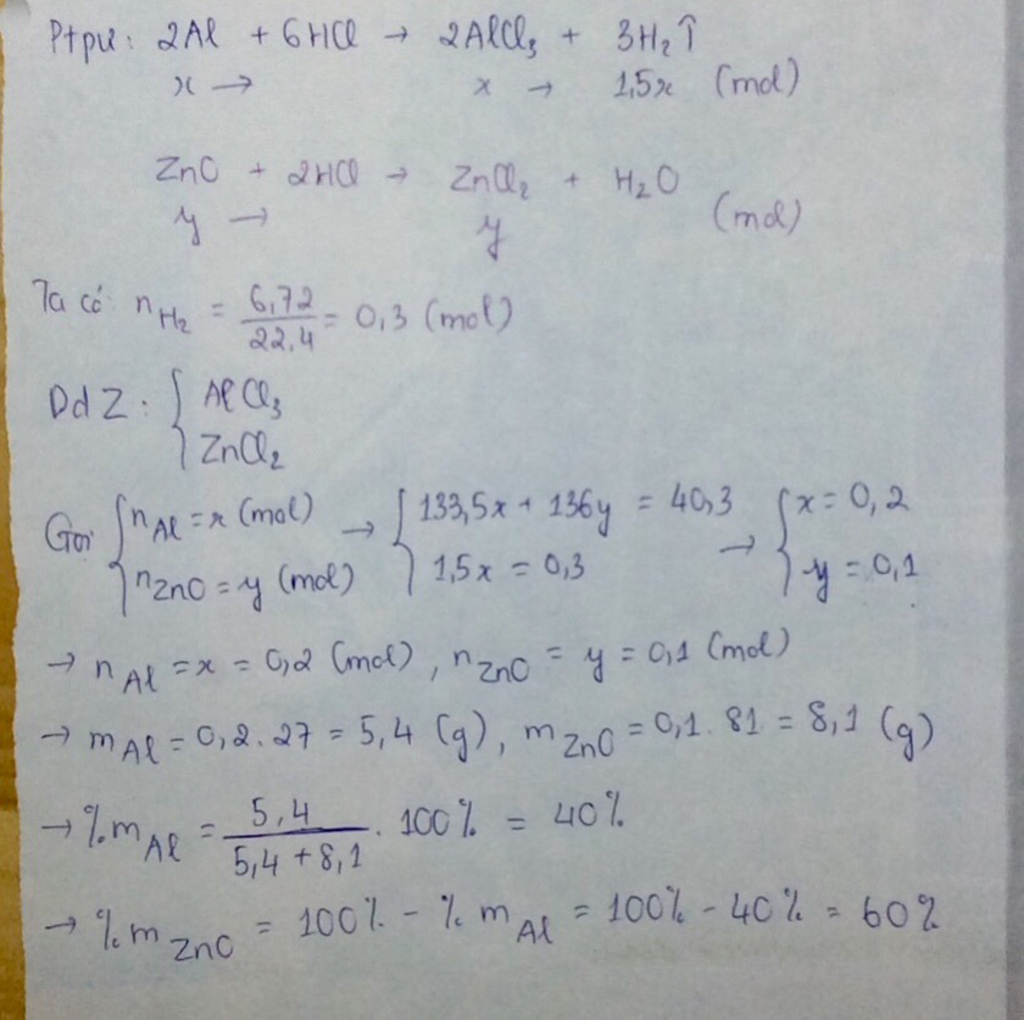 Ptpư: 2Al + 6HCl → 2AlCl₃ + 3H₂↑
x → x → 1,5x (mol)
ZnO + 2HCl → ZnCl₂ + H₂O
y → y (mol)
Ta có: n H₂ = 6,72/22,4 = 0,3 (mol)
Dd Z: { AlCl₃
ZnCl₂
Gọi { n Al = x (mol) → { 133,5x + 136y = 40,3 → { x = 0,2
n ZnO = y (mol) 1,5x = 0,3 y = 0,1
→ n Al = x = 0,2 (mol), n ZnO = y = 0,1 (mol)
→ m Al = 0,2.27 = 5,4 (g), m ZnO = 0,1.81 = 8,1 (g)
→ %m Al = 5,4/(5,4 + 8,1) . 100% = 40%
→ %m ZnO = 100% - %m Al = 100% - 40% = 60%